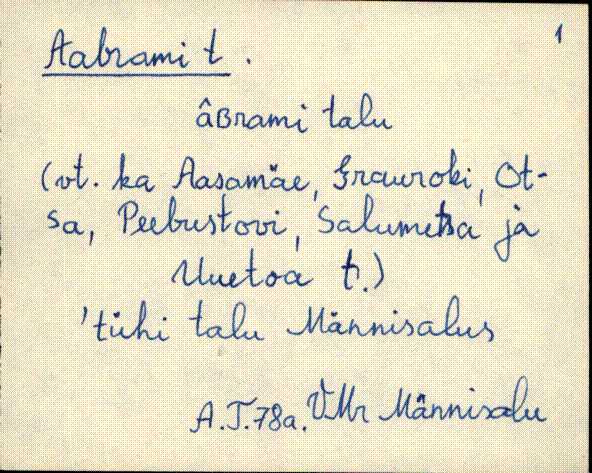 1
Aabrami t.
âʙrami talu
(vt. ka Aasamäe, Grauroki, Ot-
sa, Peebustovi, Salumetsa ja
Uuetoa t.)
'tühi talu Männisalus
A.T.78a. VMr Männisalu